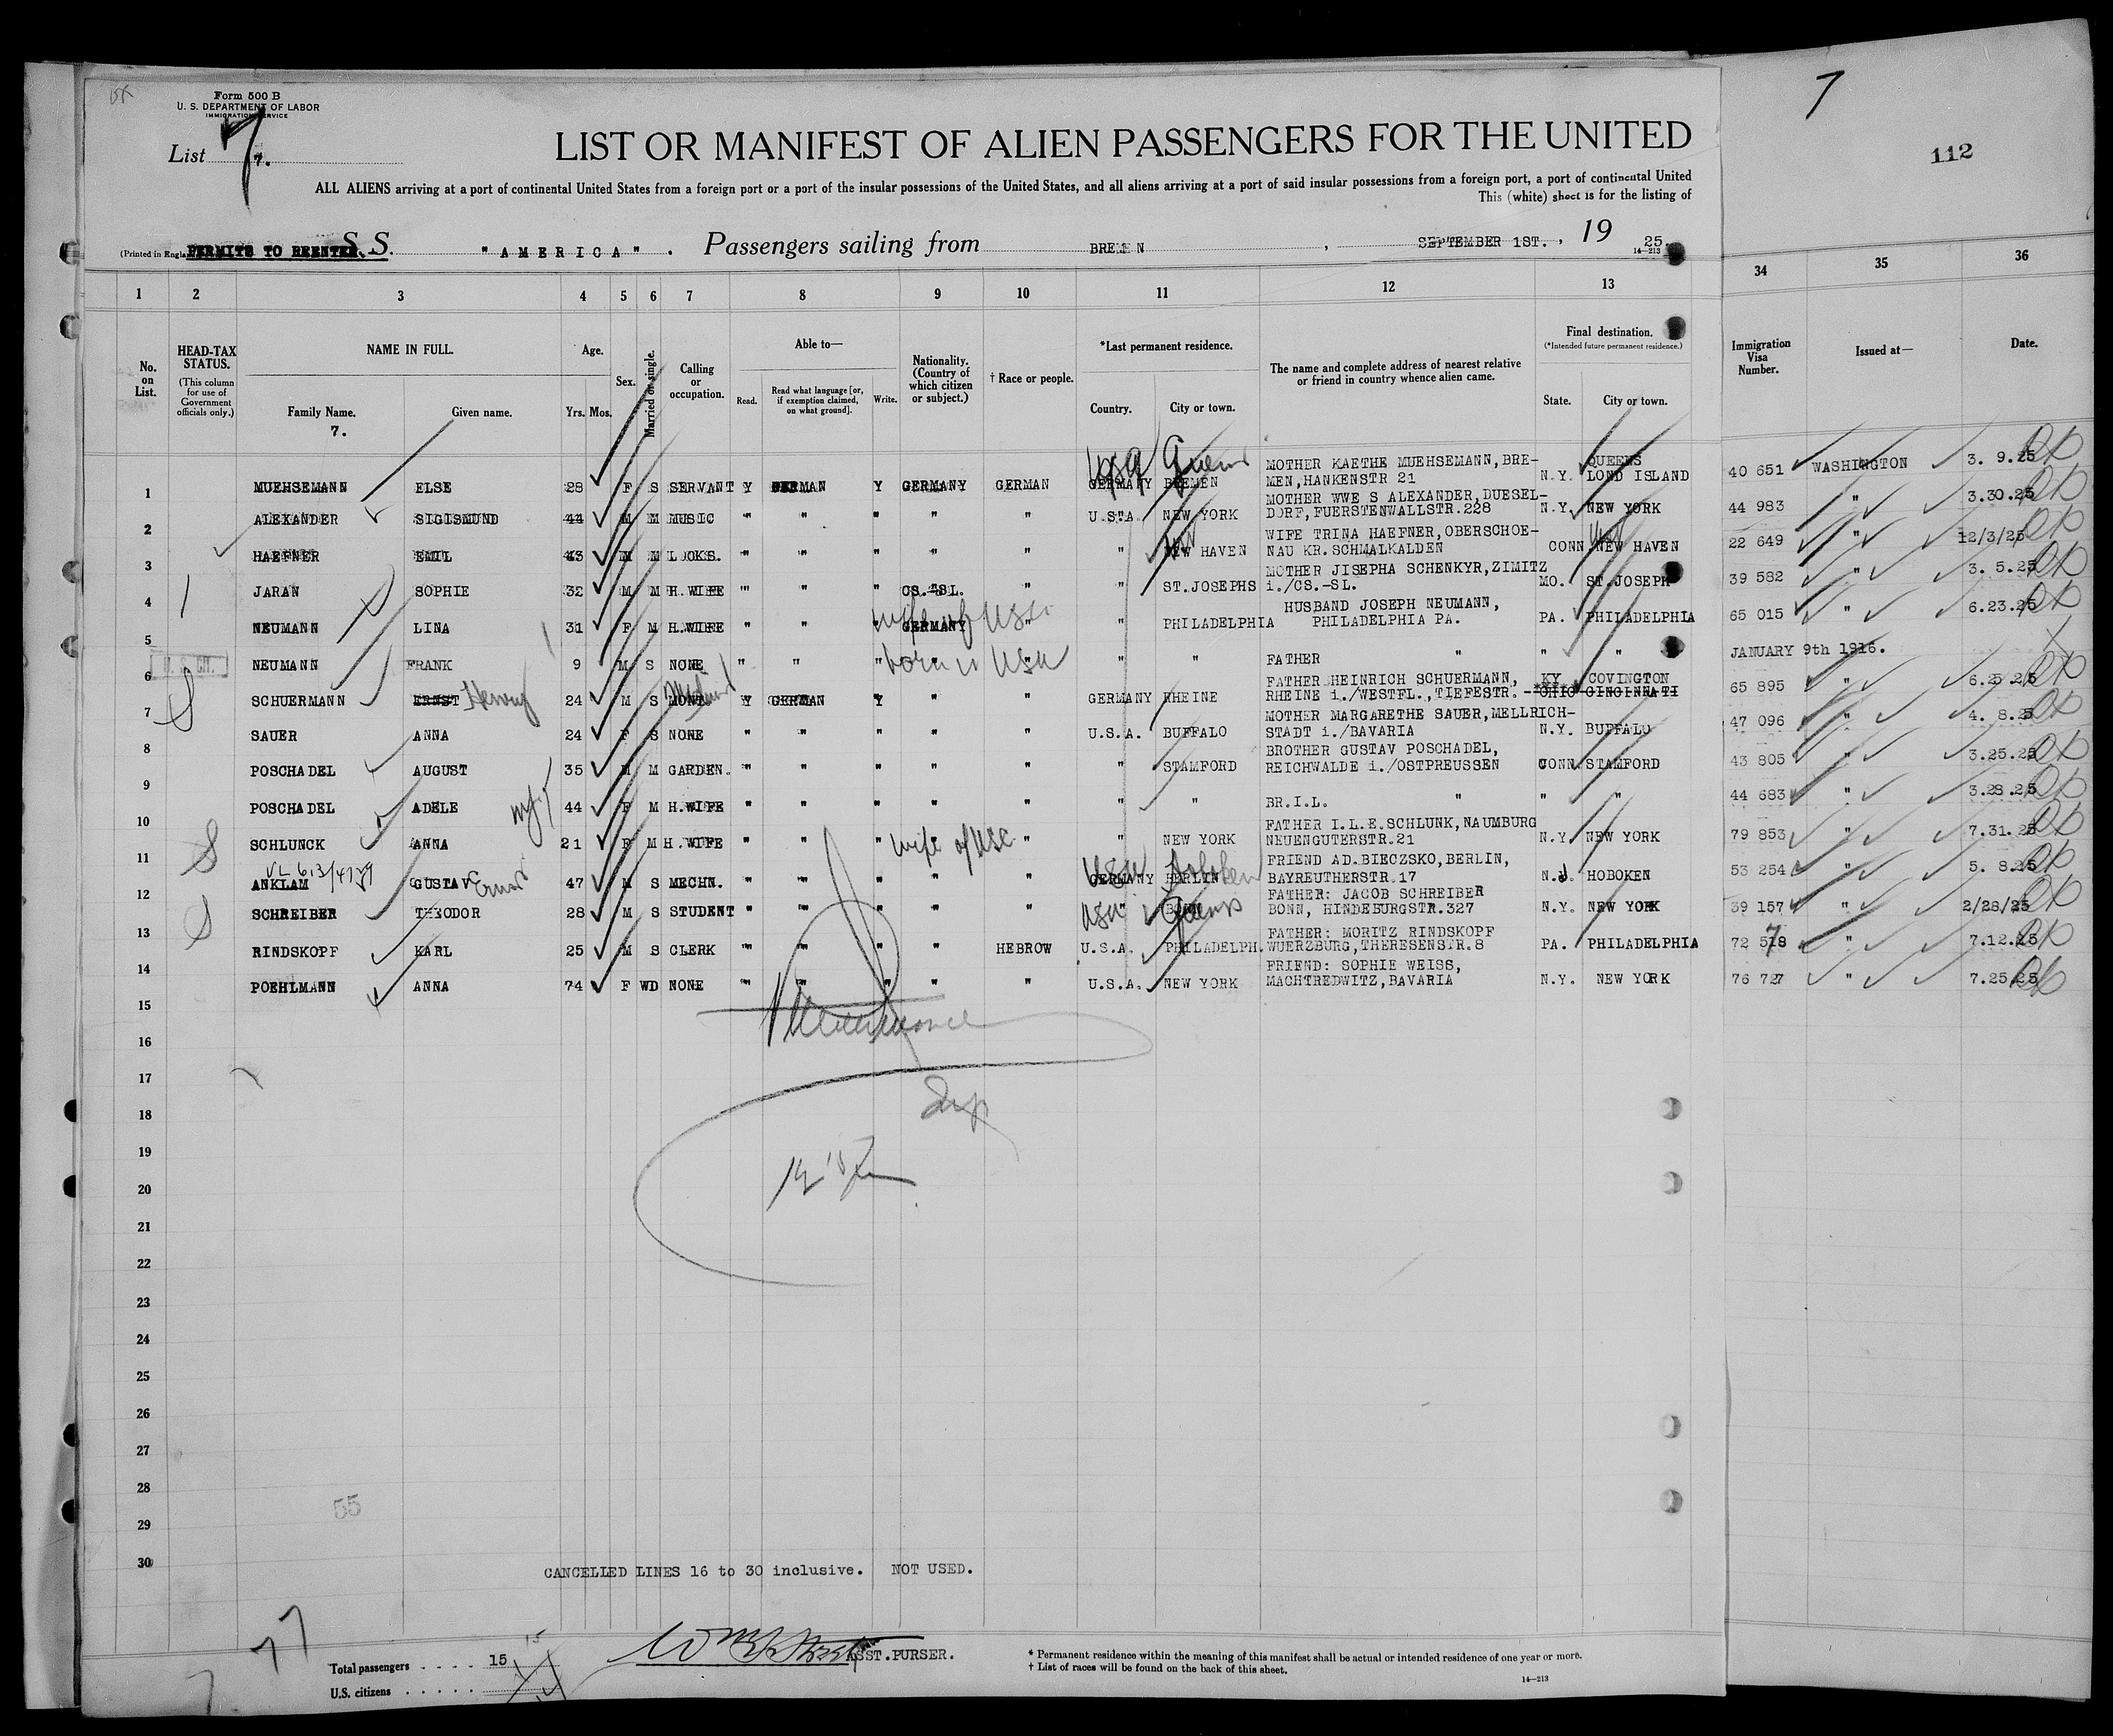 7
112
Form 500 B
U. S. DEPARTMENT OF LABOR
IMMIGRATION SERVICE
List 7.
LIST OR MANIFEST OF ALIEN PASSENGERS FOR THE UNITED
ALL ALIENS arriving at a port of continental United States from a foreign port or a port of the insular possessions of the United States, and all aliens arriving at a port of said insular possessions from a foreign port, a port of continental United
This (white) sheet is for the listing of
(Printed in Engla PERMITS TO REENTER. S. S. "AMERICA". Passengers sailing from BREMEN, SEPTEMBER 1ST., 19 25.
14—213
1 2 3 4 5 6 7 8 9 10 11 12 13 34 35 36
No. on List.
HEAD-TAX STATUS. (This column for use of Government officials only.)
NAME IN FULL. Family Name. Given name.
7.
Age. Yrs. Mos.
Sex.
Married or single.
Calling or occupation.
Able to— Read. Read what language [or, if exemption claimed, on what ground]. Write.
Nationality. (Country of which citizen or subject.)
† Race or people.
*Last permanent residence. Country. City or town.
The name and complete address of nearest relative or friend in country whence alien came.
Final destination. (*Intended future permanent residence.) State. City or town.
Immigration Visa Number.
Issued at—
Date.
USA Queens
MOTHER KAETHE MUEHSEMANN, BRE- QUEENS
1 MUEHSEMANN ELSE 28 F S SERVANT Y GERMAN Y GERMANY GERMAN GERMANY BREMEN MEN, HANKENSTR 21 N.Y. LOND ISLAND 40 651 WASHINGTON 3. 9.25
MOTHER WWE S ALEXANDER, DUESEL-
2 ALEXANDER SIGISMUND 44 M M MUSIC " " " " " U.S.A. NEW YORK DORF, FUERSTENWALLSTR.228 N.Y. NEW YORK 44 983 " 3.30.25
WIFE TRINA HAEFNER, OBERSCHOE-
3 HAEFNER EMIL 43 M M LOOKS. " " " " " " NEW HAVEN NAU KR.SCHMALKALDEN CONN NEW HAVEN 22 649 " 12/3/25
MOTHER JISEPHA SCHENKYR, ZIMITZ
4 JARAN SOPHIE 32 M M H.WIFE " " " CS.-SL. " " ST.JOSEPHS i./CS.-SL. MO. ST.JOSEPH 39 582 " 3. 5.25
wife of USC
HUSBAND JOSEPH NEUMANN,
5 NEUMANN LINA 31 F M H.WIFE " " " GERMANY " " PHILADELPHIA PHILADELPHIA PA. PA. PHILADELPHIA 65 015 " 6.23.25
U. S. CIT.
born in USA
6 NEUMANN FRANK 9 M S NONE " " " " " " FATHER " " " JANUARY 9th 1916.
FATHER HEINRICH SCHUERMANN, KY. COVINGTON
7 SCHUERMANN ERNST Henry 24 M S MONT. Y GERMAN Y " " GERMANY RHEINE RHEINE i./WESTFL., TIEFESTR. OHIO CINCINNATI 65 895 " 6.25.25
MOTHER MARGARETHE SAUER, MELLRICH-
8 SAUER ANNA 24 F S NONE " " " " " U.S.A. BUFFALO STADT i./BAVARIA N.Y. BUFFALO 47 096 " 4. 8.25
BROTHER GUSTAV POSCHADEL,
9 POSCHADEL AUGUST 35 M M GARDEN. " " " " " " STAMFORD REICHWALDE i./OSTPREUSSEN CONN. STAMFORD 43 805 " 3.25.25
10 POSCHADEL ADELE 44 F M H.WIFE " " " " " " " BR.I.L. " " " 44 683 " 3.28.25
FATHER I.L.E.SCHLUNK, NAUMBURG
11 SCHLUNCK ANNA 21 F M H.WIFE " " " wife of USC " " NEW YORK NEUENGUTERSTR.21 N.Y. NEW YORK 79 853 " 7.31.25
USA Hoboken
FRIEND AD.BIECZSKO, BERLIN,
12 ANKLAM GUSTAV Ernst 47 M S MECHN. " " " " " GERMANY BERLIN BAYREUTHERSTR.17 N.J. HOBOKEN 53 254 " 5. 8.25
FATHER: JACOB SCHREIBER
13 SCHREIBER THEODOR 28 M S STUDENT " " " " " USA " BONN Queens BONN, HINDEBURGSTR.327 N.Y. NEW YORK 39 157 " 2/28/25
FATHER: MORITZ RINDSKOPF
14 RINDSKOPF KARL 25 M S CLERK " " " " HEBROW U.S.A. PHILADELPH. WUERZBURG, THERESENSTR.8 PA. PHILADELPHIA 72 518 " 7.12.25
FRIEND: SOPHIE WEISS,
15 POEHLMANN ANNA 74 F WD NONE " " " " " U.S.A. NEW YORK MACHTREDWITZ, BAVARIA N.Y. NEW YORK 76 727 " 7.25.25
16
17
18
19
20
21
22
23
24
25
26
27
28
55
29
30
CANCELLED LINES 16 to 30 inclusive. NOT USED.
77
Total passengers . . . . 15
U.S. citizens . . . . .
ASST.PURSER.
* Permanent residence within the meaning of this manifest shall be actual or intended residence of one year or more.
† List of races will be found on the back of this sheet.
14—213